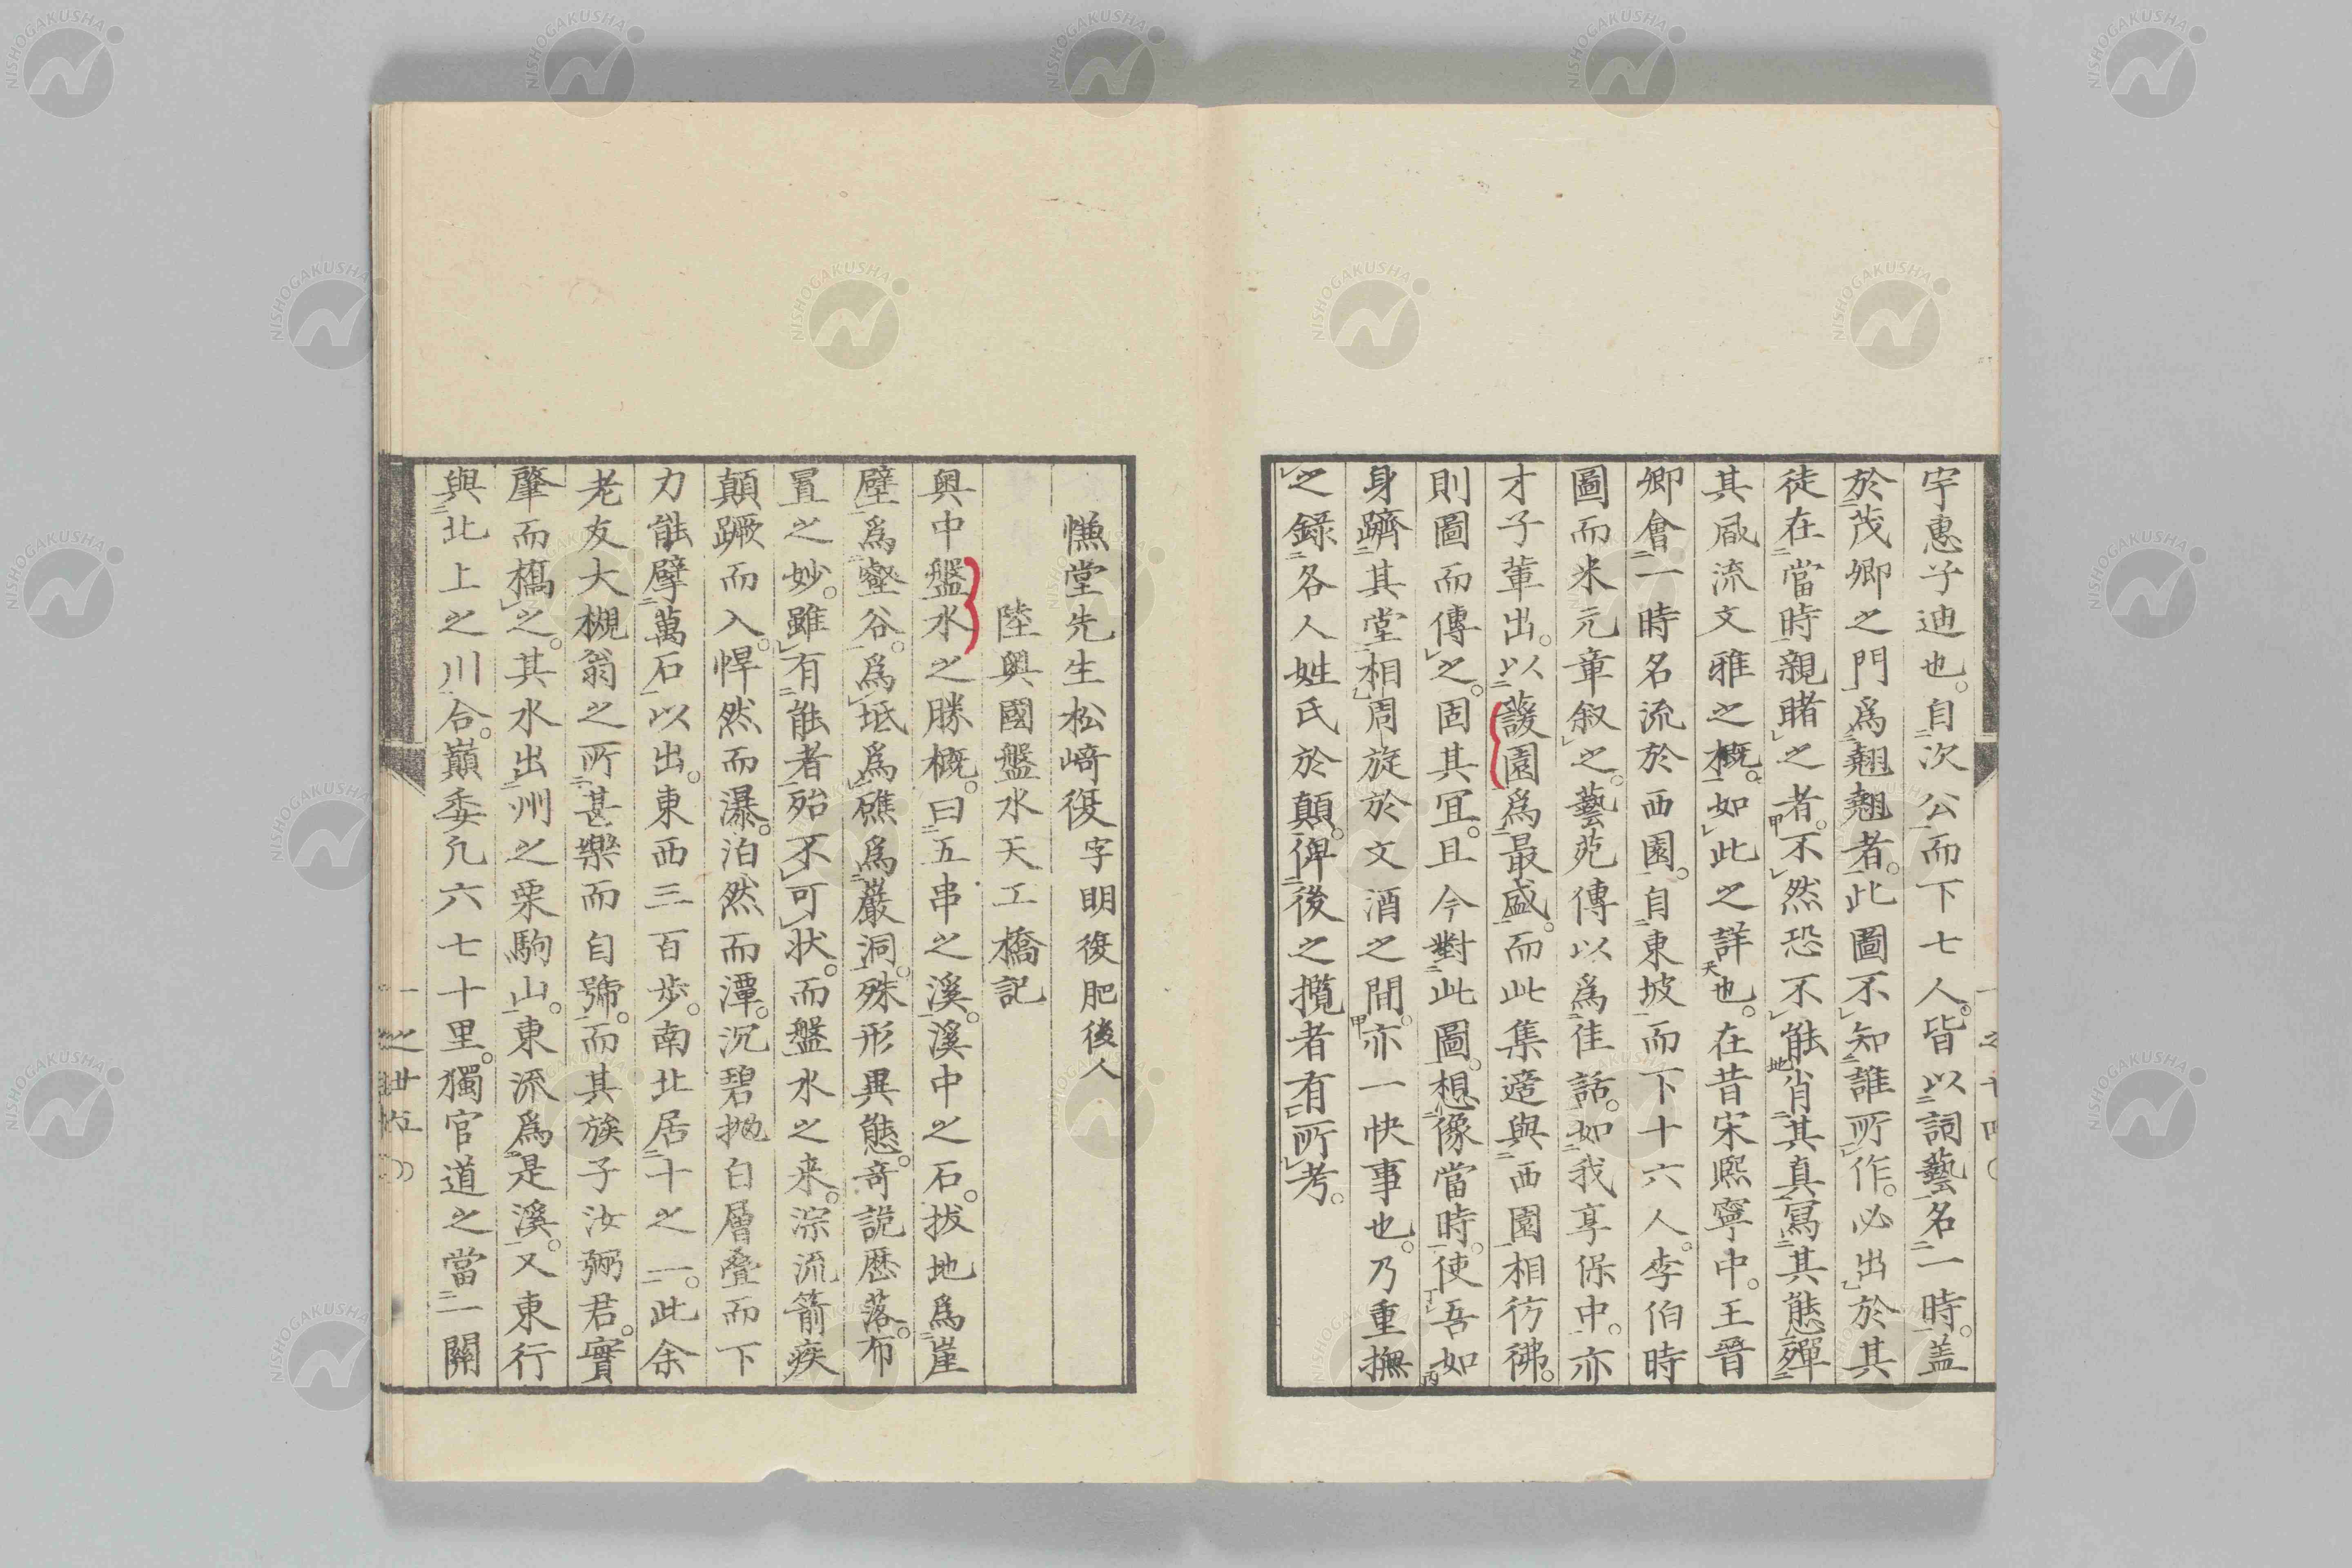 宇惠子迪也。自次公而下七人。皆以詞藝名一時。盖
於茂卿之門爲翹翹者。此圖不知誰所作。必出於其
徒在當時親睹之者。不然恐不能肖其真寫其態殫
其風流文雅之概。如此之詳也。在昔宋熙寧中。王晉
卿會一時名流於西園。自東坡而下十六人。李伯時
圖而米元章叙之。藝苑傳以爲佳話。如我享保中。亦
才子輩出。以蘐園爲最盛。而此集適與西園相彷彿。
則圖而傳之。固其冝。且今對此圖。想像當時。使吾如
身躋其堂相周旋於文酒之間。亦一快事也。乃重撫
之錄各人姓氏於顛。俾後之攬者有所考。
慊堂先生松﨑復字明復肥後人
陸奧國盤水天工橋記
奧中盤水之勝概。曰五串之溪。溪中之石。拔地爲崖
壁爲壑谷。爲坻爲礁爲巖洞。殊形異態。奇詭歷落。布
置之妙。雖有能者殆不可状。而盤水之来。淙流箭疾
顛蹶而入。悍然而瀑。泊然而潭。沉碧抛白層疊而下
力能擘萬石以出。東西三百歩。南北居十之一。此余
老友大槻翁之所甚樂而自號。而其族子汝弼君。實
肇而橋之。其水出州之栗駒山。東流爲是溪。又東行
與北上之川合。巔委凢六七十里。獨官道之當一關